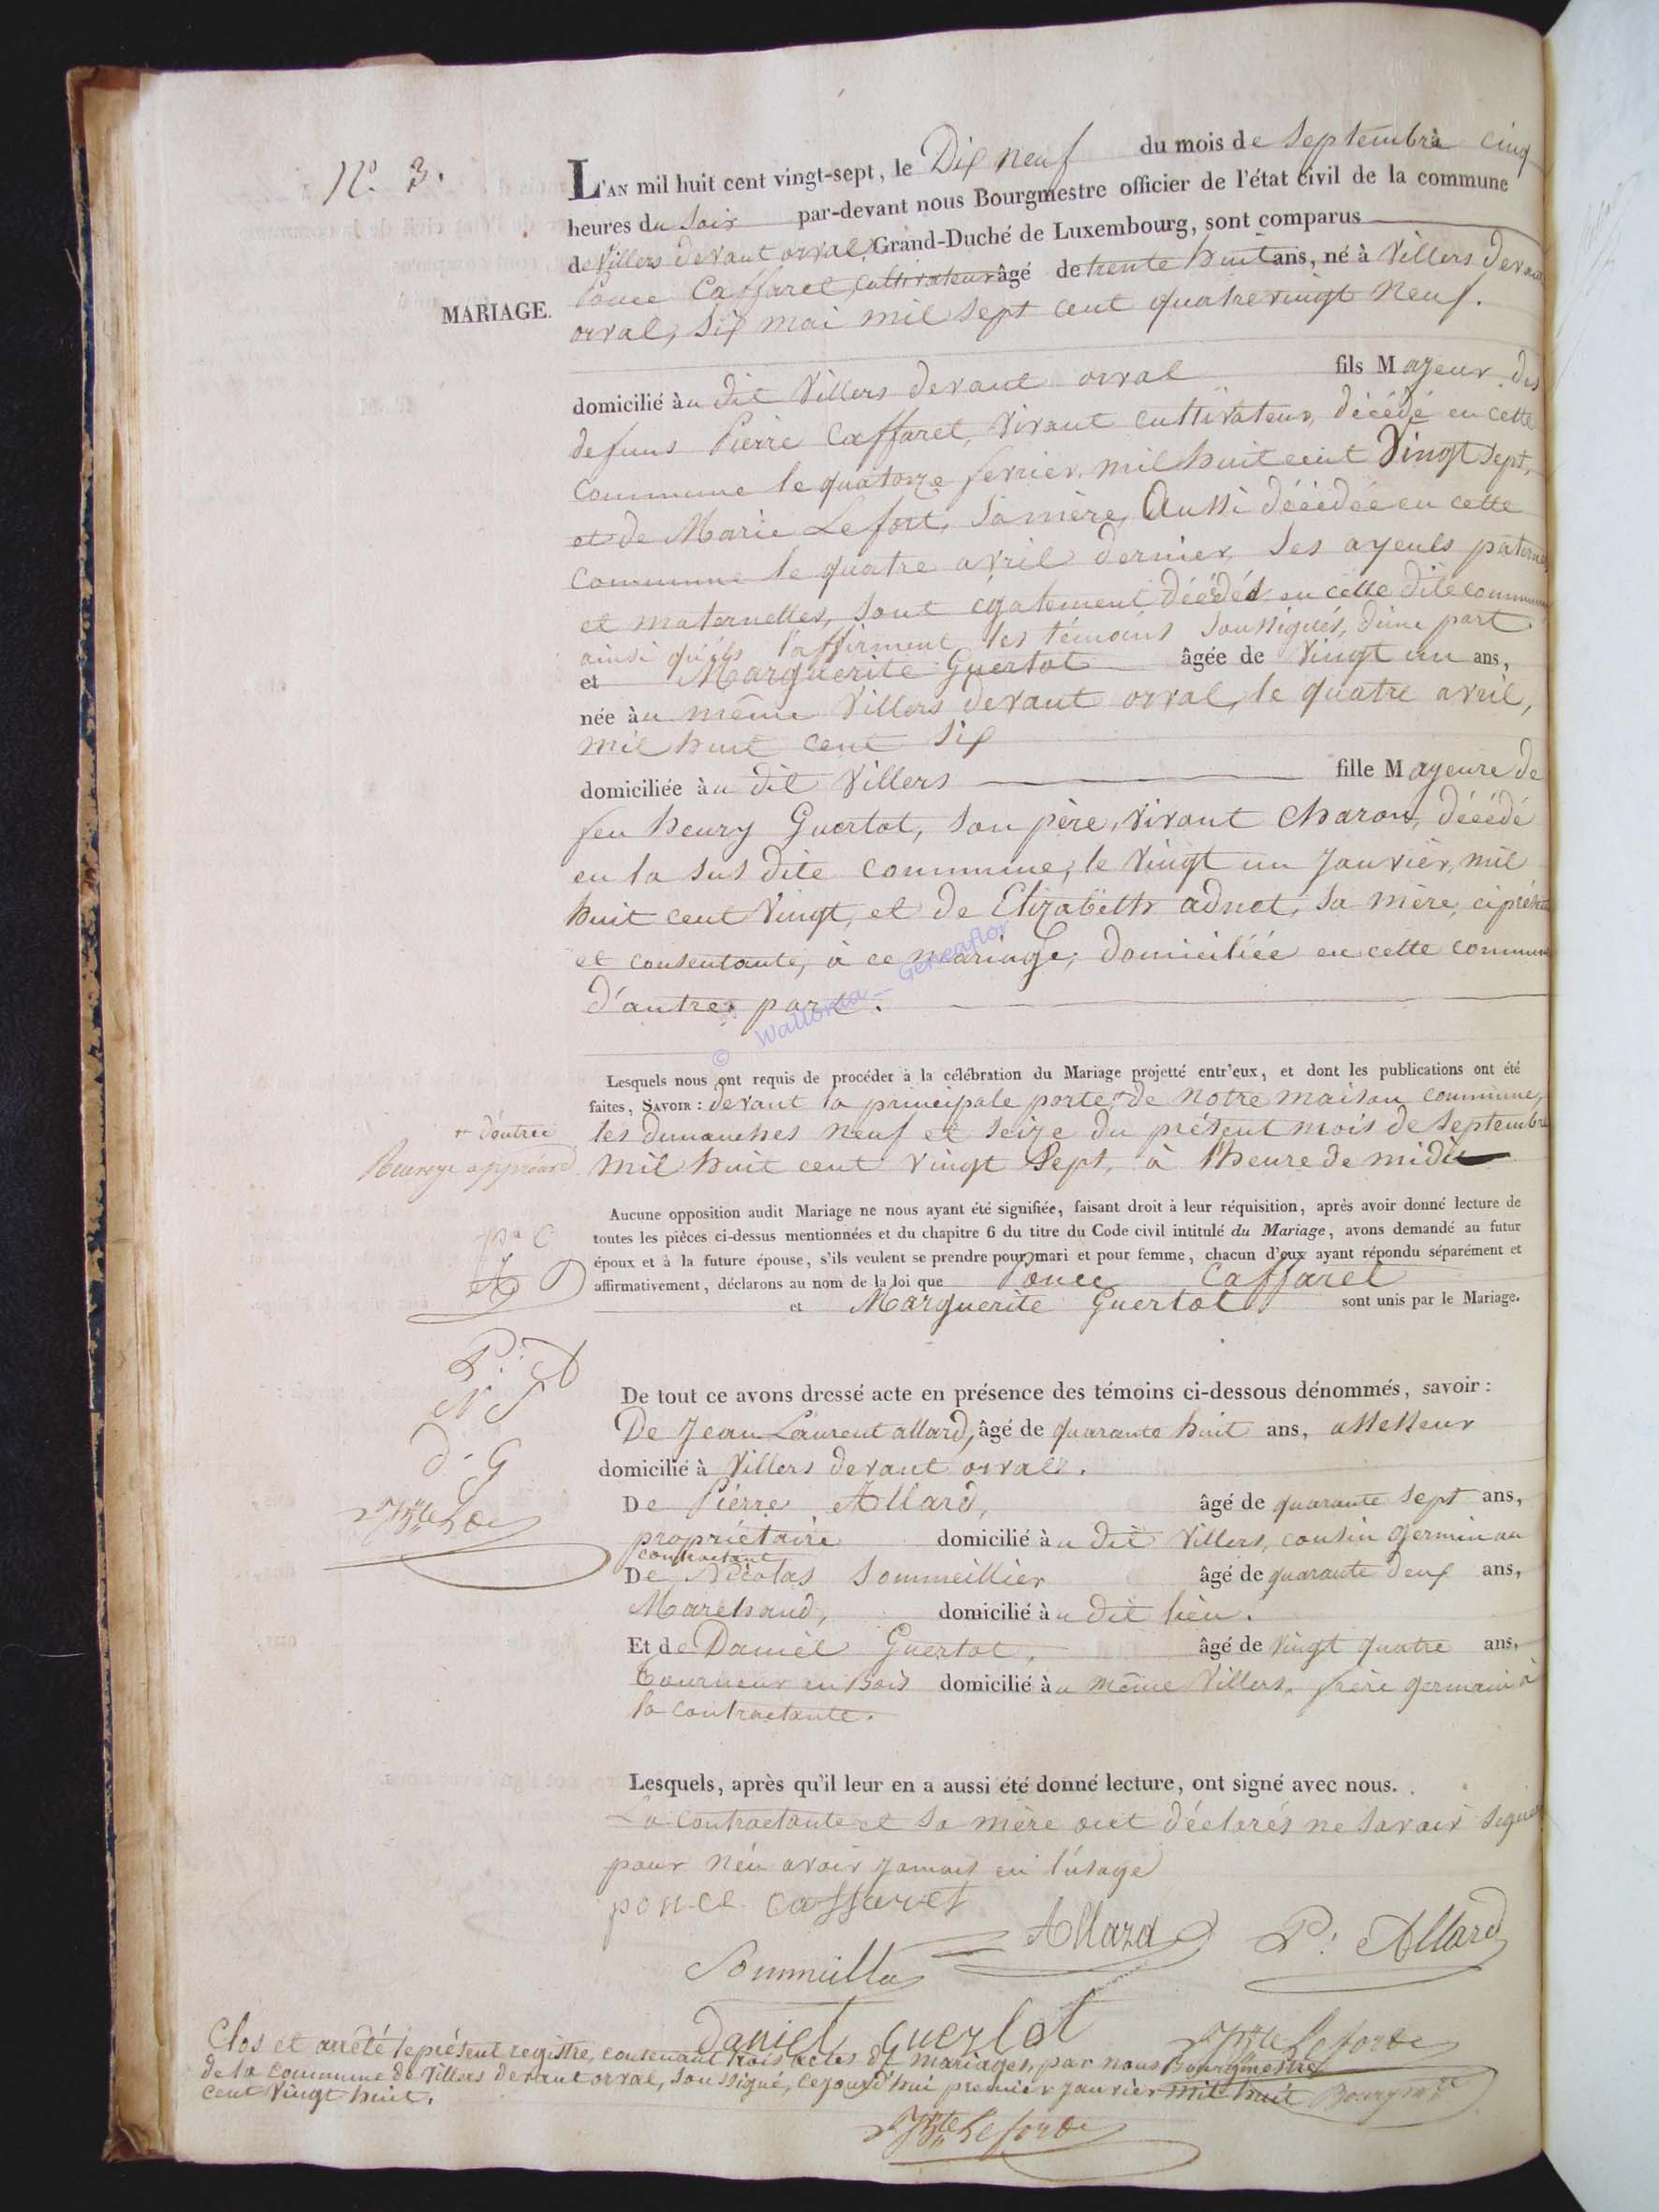 N.° 3.
MARIAGE.
L'AN mil huit cent vingt-sept, le Dix neuf du mois de Septembre à cinq
heures du Soir par-devant nous Bourgmestre officier de l'état civil de la commune
de Villers devant orval, Grand-Duché de Luxembourg, sont comparus
Ponce Caffaret, cultivateur âgé de trente huit ans, né à Villers devant
orval, Six mai mil sept cent quatrevingt neuf.
domicilié au dit Villers devant orval fils Majeur des
defuns Pierre Caffaret, Vivant cultivateur, décédé en cette
Commune le quatorze fevrier, mil huit cent Vingt sept,
et de Marie Lefort, Sa mère, Aussi décédée en cette
Commune le quatre avril dernier, Ses ayeuls paternels
et maternelles, sont egalement décédés en cette dite commune
ainsi qu'ils l'affirment les témoins soussignés, d'une part.
et Marguerite Guertot âgée de Vingt un ans,
née au même Villers devant orval, le quatre avril,
mil huit cent Six
domiciliée au dit Villers fille Majeure de
feu henry Guertot, son père, vivant Charon, décédé
en la sus dite commune, le Vingt un Janvier, mil
huit cent Vingt, et de Elizabeth adnet, Sa mère, ci présente
et consentante, à ce mariage, domiciliée en cette commune
d'autre part.
© Wallonia - Geneaflor
Lesquels nous ont requis de procéder à la célébration du Mariage projetté entr'eux, et dont les publications ont été
faites, SAVOIR : devant la principale porte + de notre maison commune,
les dimanches neuf et Seize du présent mois de Septembre
mil huit cent vingt Sept, à l'heure de midi
+ d'entrée
Renvoye approuvé
Aucune opposition audit Mariage ne nous ayant été signifiée, faisant droit à leur réquisition, après avoir donné lecture de
toutes les pièces ci-dessus mentionnées et du chapitre 6 du titre du Code civil intitulé du Mariage, avons demandé au futur
époux et à la future épouse, s'ils veulent se prendre pour mari et pour femme, chacun d'eux ayant répondu séparément et
affirmativement, déclarons au nom de la loi que Ponce Caffaret
et Marguerite Guertot sont unis par le Mariage.
P: A
N S
d. G
De tout ce avons dressé acte en présence des témoins ci-dessous dénommés, savoir :
De Jean Laurent allard, âgé de quarante huit ans, assesseur
domicilié à Villers devant orval.
De Pierre Allard, âgé de quarante sept ans,
propriétaire domicilié au dit Villers, cousin germin au
contractant
De Nicolas Sommeillier âgé de quarante Deux ans,
Marchand, domicilié au dit lieu.
Et de Daniel Guertot, âgé de Vingt quatre ans,
tourneur en Bois domicilié au même Villers, frère germain à
la contractante.
Lesquels, après qu'il leur en a aussi été donné lecture, ont signé avec nous.
La contractante et sa mère ont déclarés ne savoir signer
pour n'en avoir jamais eu l'usage
ponce caffaret
Allard P: Allard
Daniel guerlot
Clos et arrêté le présent registre, contenant trois actes de mariages, par nous Bourgmestre
de la commune de Villers devant orval, soussigné, cejourd'hui premier janvier mil huit
cent Vingt huit.